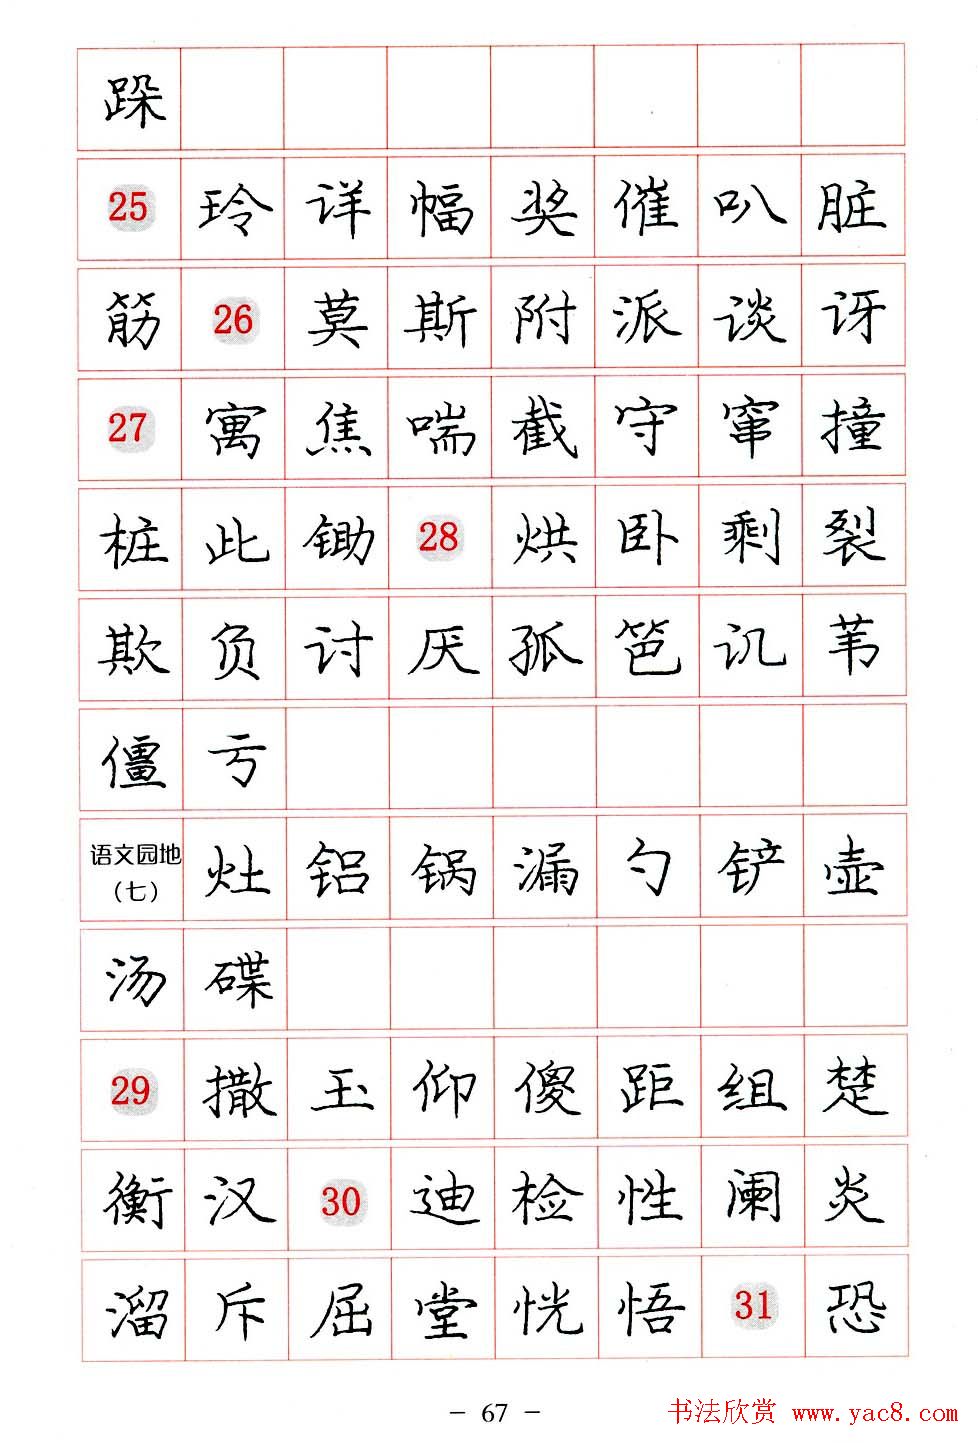 跺
25 玲 详 幅 奖 催 叭 脏
筋 26 莫 斯 附 派 谈 讶
27 寓 焦 喘 截 守 窜 撞
桩 此 锄 28 烘 卧 剩 裂
欺 负 讨 厌 孤 笆 讥 苇
僵 亏
语文园地(七) 灶 铝 锅 漏 勺 铲 壶
汤 碟
29 撒 玉 仰 傻 距 组 楚
衡 汉 30 迪 检 性 阑 炎
溜 斥 屈 堂 恍 悟 31 恐
- 67 -
书法欣赏 www.yac8.com